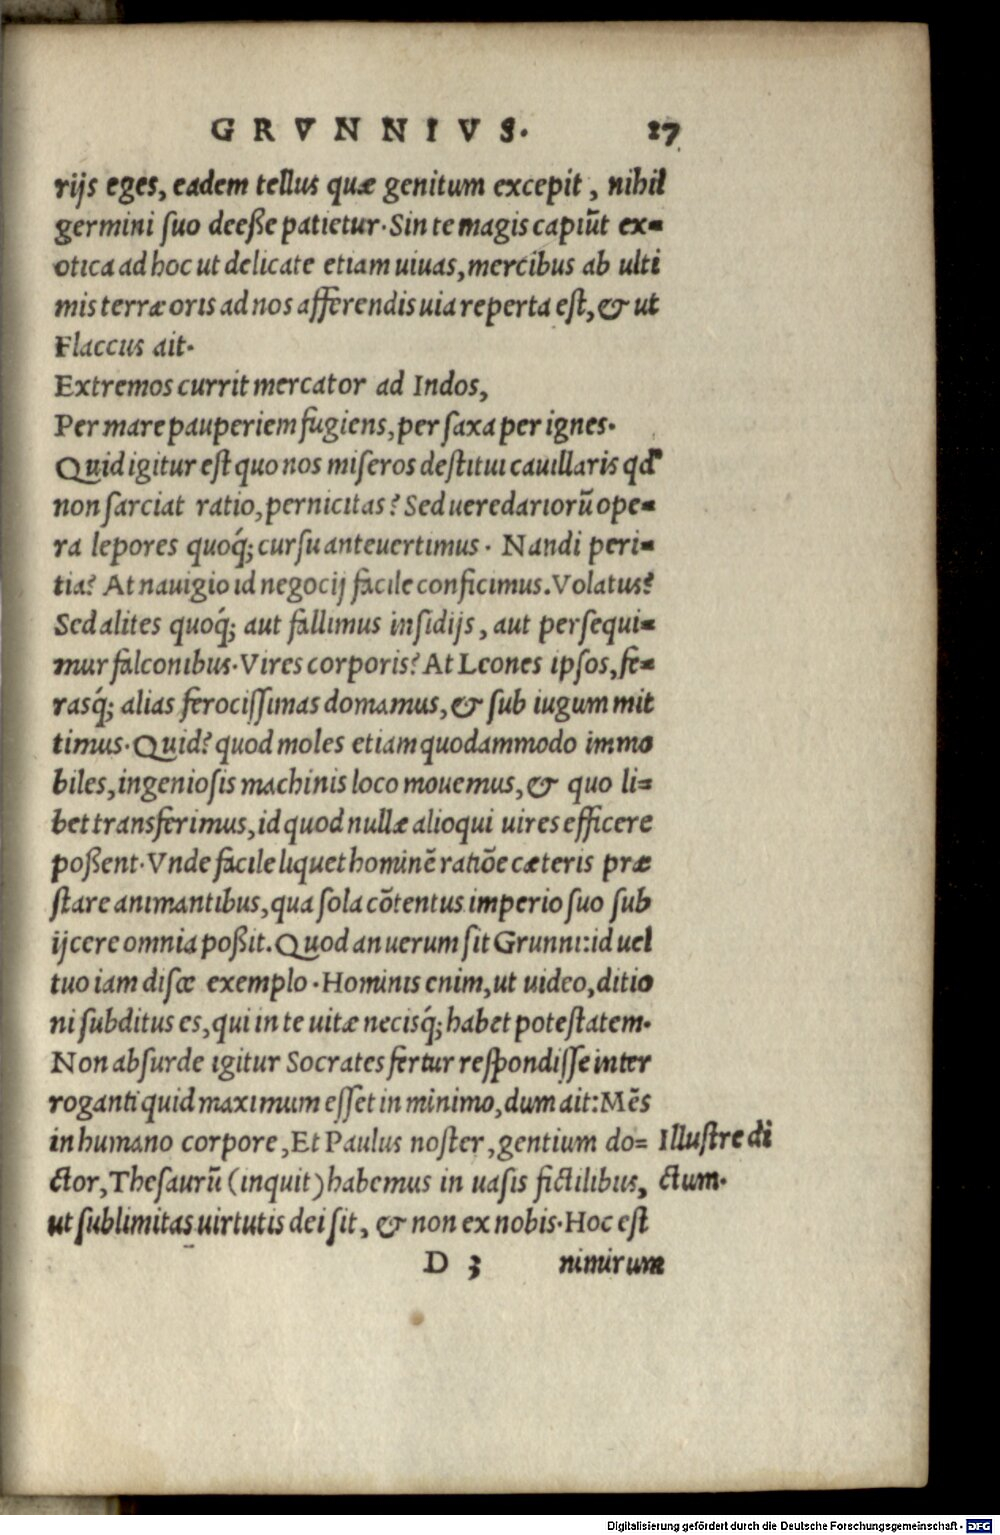 GRVNNIVS. 27
rijs eges, eadem tellus quæ genitum excepit, nihil
germini suo deeße patietur. Sin te magis capiūt ex=
otica ad hoc ut delicate etiam uiuas, mercibus ab ulti
mis terræ oris ad nos afferendis uia reperta est, & ut
Flaccus ait.
Extremos currit mercator ad Indos,
Per mare pauperiem fugiens, per saxa per ignes.
Quid igitur est quo nos miseros destitui cauillaris qd'
non sarciat ratio, pernicitas? Sed ueredariorū ope=
ra lepores quoq́; cursu anteuertimus. Nandi peri=
tia? At nauigio id negocij facile conficimus. Volatus?
Sed alites quoq́; aut fallimus insidijs, aut persequi=
mur falconibus. Vires corporis? At Leones ipsos, fe=
rasq́; alias ferocissimas domamus, & sub iugum mit
timus. Quid? quod moles etiam quodammodo immo
biles, ingeniosis machinis loco mouemus, & quo li=
bet transferimus, id quod nullæ alioqui uires efficere
poßent. Vnde facile liquet hominē ratiōe cæteris præ
stare animantibus, qua sola cōtentus imperio suo sub
ijcere omnia poßit. Quod an uerum sit Grunni: id uel
tuo iam disce exemplo. Hominis enim, ut uideo, ditio
ni subditus es, qui in te uitæ necisq́; habet potestatem.
Non absurde igitur Socrates fertur respondisse inter
roganti quid maximum esset in minimo, dum ait: Mēs
in humano corpore, Et Paulus noster, gentium do= Illustre di
ctor, Thesaurū (inquit) habemus in uasis fictilibus, ctum.
ut sublimitas uirtutis dei sit, & non ex nobis. Hoc est
D 3 nimirum
Digitalisierung gefördert durch die Deutsche Forschungsgemeinschaft - DFG